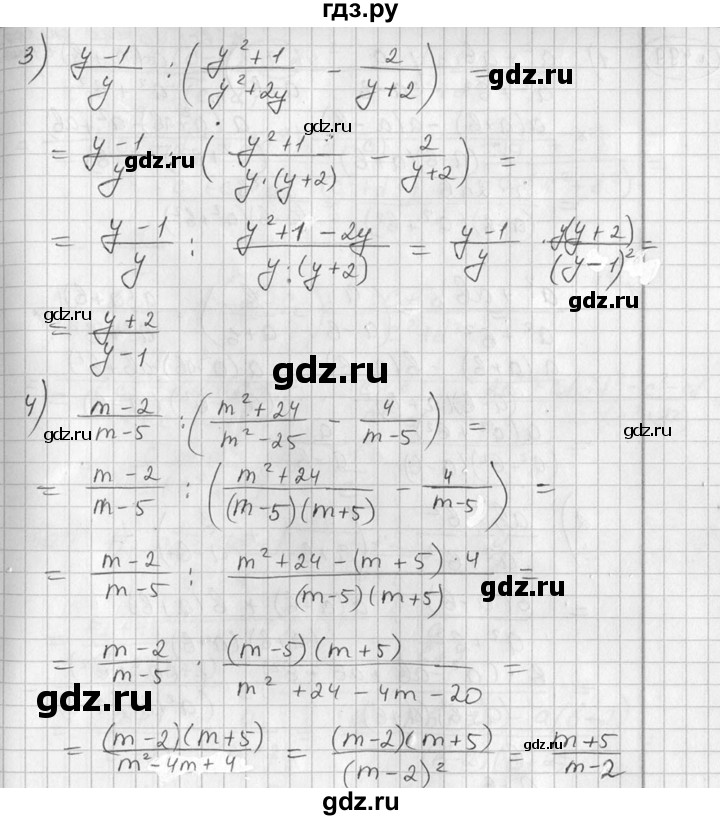 гдз.ру
3) (y - 1)/y : ((y² + 1)/(y² + 2y) - 2/(y + 2)) =
gdz.ru
gdz.ru
= (y - 1)/y : ((y² + 1)/(y · (y + 2)) - 2/(y + 2)) =
gdz.ru
= (y - 1)/y : (y² + 1 - 2y)/(y · (y + 2)) = (y - 1)/y · y(y + 2)/(y - 1)² =
gdz.ru
gdz.ru
= (y + 2)/(y - 1)
gdz.ru
4) (m - 2)/(m - 5) : ((m² + 24)/(m² - 25) - 4/(m - 5)) =
gdz.ru
gdz.ru
= (m - 2)/(m - 5) : ((m² + 24)/((m - 5)(m + 5)) - 4/(m - 5)) =
= (m - 2)/(m - 5) : (m² + 24 - (m + 5) · 4)/((m - 5)(m + 5)) =
gdz.ru
= (m - 2)/(m - 5) · ((m - 5)(m + 5))/(m² + 24 - 4m - 20) =
gdz.ru
= ((m - 2)(m + 5))/(m² - 4m + 4) = ((m - 2)(m + 5))/(m - 2)² = (m + 5)/(m - 2)
gdz.ru
gdz.ru